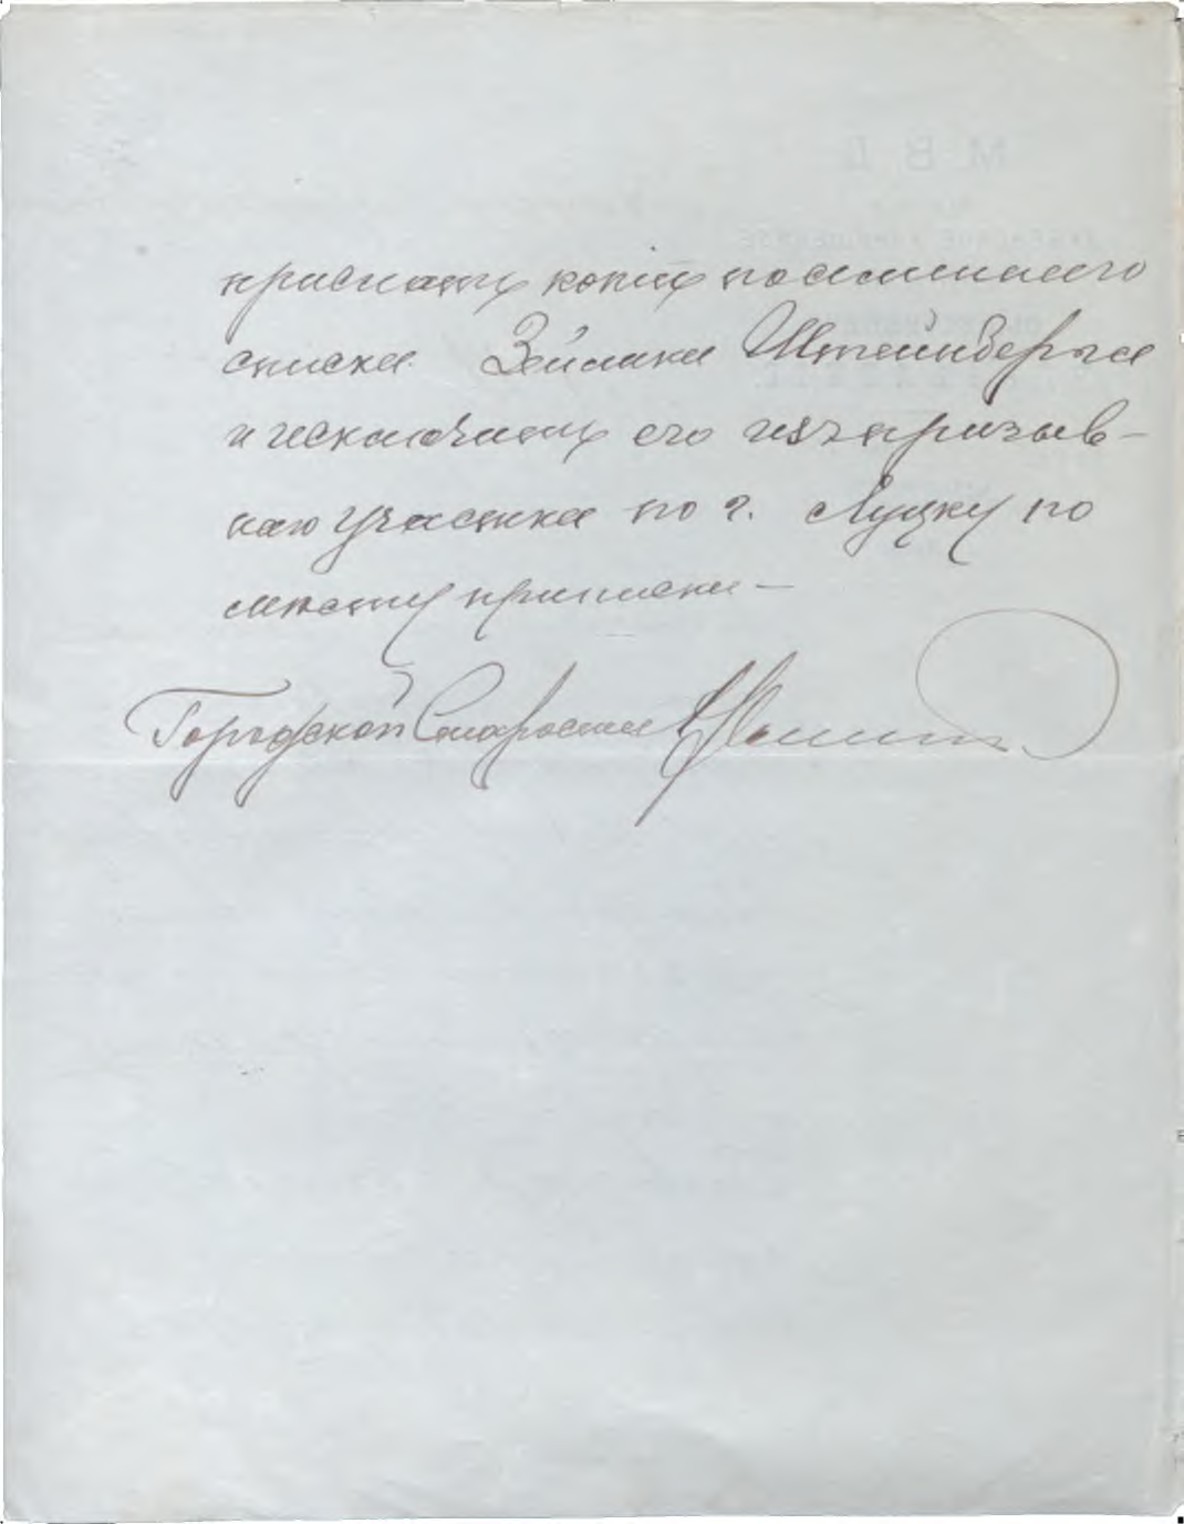 прислать копию посемейного
списка Зейлика Штейнберга
и исключить его изъ призыв-
наго участка по г. Луцку по
мѣсту приписки —
Городской Староста